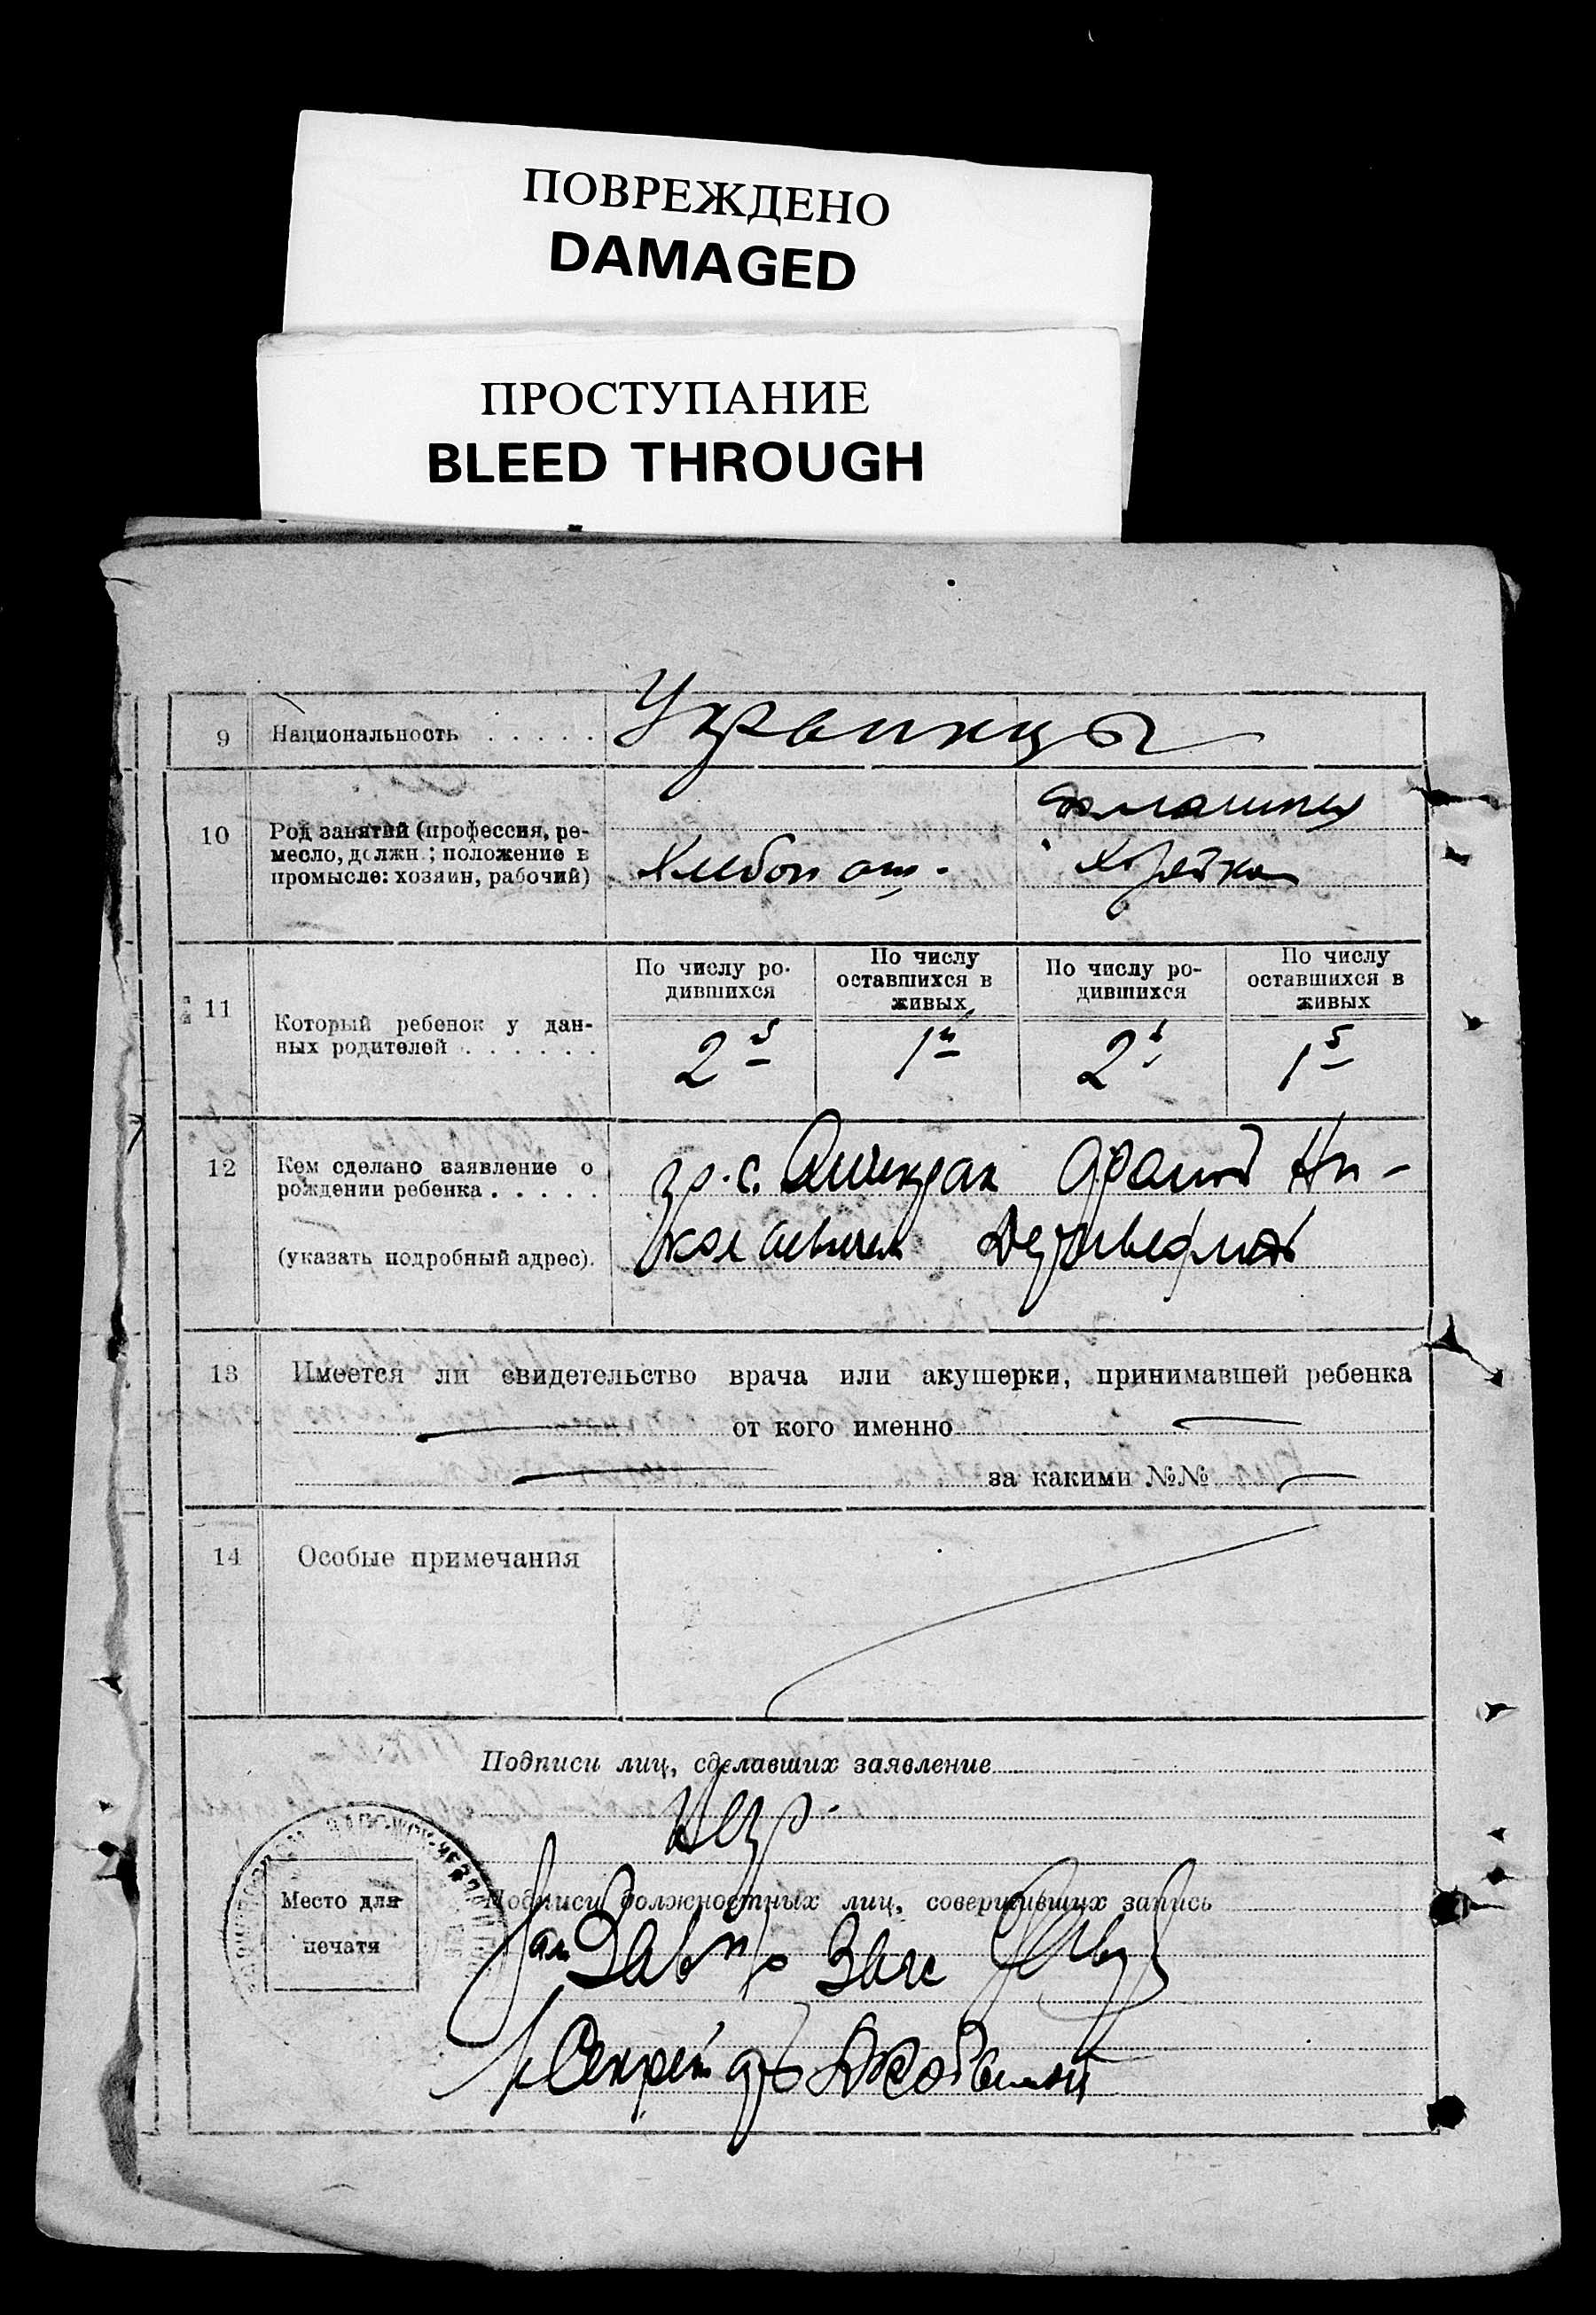 ПОВРЕЖДЕНО
DAMAGED
ПРОСТУПАНИЕ
BLEED THROUGH
9 Национальность . . . . . Украинцы
10 Род занятий (профессия, ре-
месло, должн.; положение в
промысле: хозяин, рабочий)
Хлебопаш.
домашняя
хозяйка
11 Который ребенок у дан-
ных родителей . . . . . .
По числу ро-
дившихся
По числу
оставшихся в
живых
По числу ро-
дившихся
По числу
оставшихся в
живых
2й 1й 2й 1й
12 Кем сделано заявление о
рождении ребенка . . . . .
(указать подробный адрес).
гр. с. Ни-
колаевичем
13 Имеется ли свидетельство врача или акушерки, принимавшей ребенка
от кого именно
за какими №№
14 Особые примечания
Подписи лиц, сделавших заявление
Негр.
Место для
печати
Подписи должностных лиц, совершивших запись
Зав Загс
Секрет